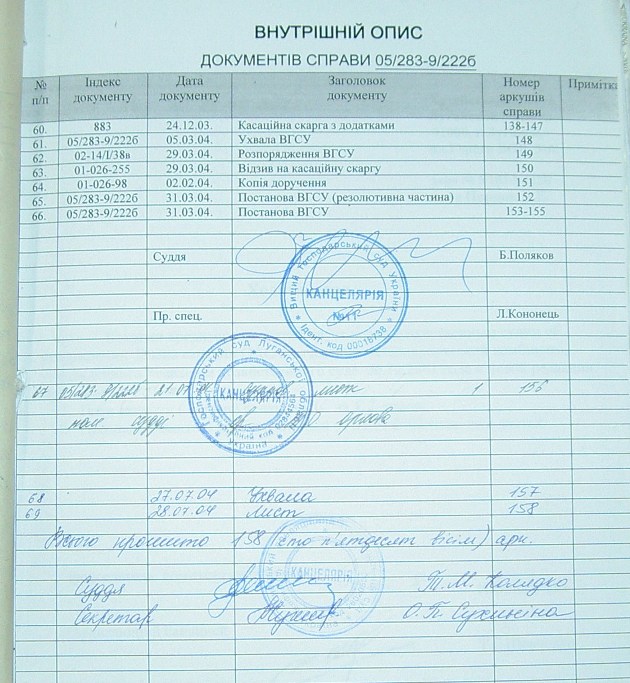 ВНУТРІШНІЙ ОПИС
ДОКУМЕНТІВ СПРАВИ 05/283-9/222б
№ п/п Індекс документу Дата документу Заголовок документу Номер аркушів справи Примітка
60. 883 24.12.03. Касаційна скарга з додатками 138-147
61. 05/283-9/222б 05.03.04. Ухвала ВГСУ 148
62. 02-14/І/38в 29.03.04. Розпорядження ВГСУ 149
63. 01-026-255 29.03.04. Відзив на касаційну скаргу 150
64. 01-026-98 02.02.04. Копія доручення 151
65. 05/283-9/222б 31.03.04. Постанова ВГСУ (резолютивна частина) 152
66. 05/283-9/222б 31.03.04. Постанова ВГСУ 153-155
Суддя Б.Поляков
Вищий господарський суд України
КАНЦЕЛЯРІЯ
№1
Ідент. код 00016738
Пр. спец. Л.Кононець
Господарський суд Луганської області
67 05/283-9/222б лист 1 156
КАНЦЕЛЯРІЯ
Україна
пом судді орлова
68 27.07.04 Ухвала 157
69 28.07.04 Лист 158
Всього прошито 158 (сто п'ятдесят вісім) арк.
КАНЦЕЛЯРІЯ
Суддя Т.М. Колядко
Секретар О.П. Сухинина